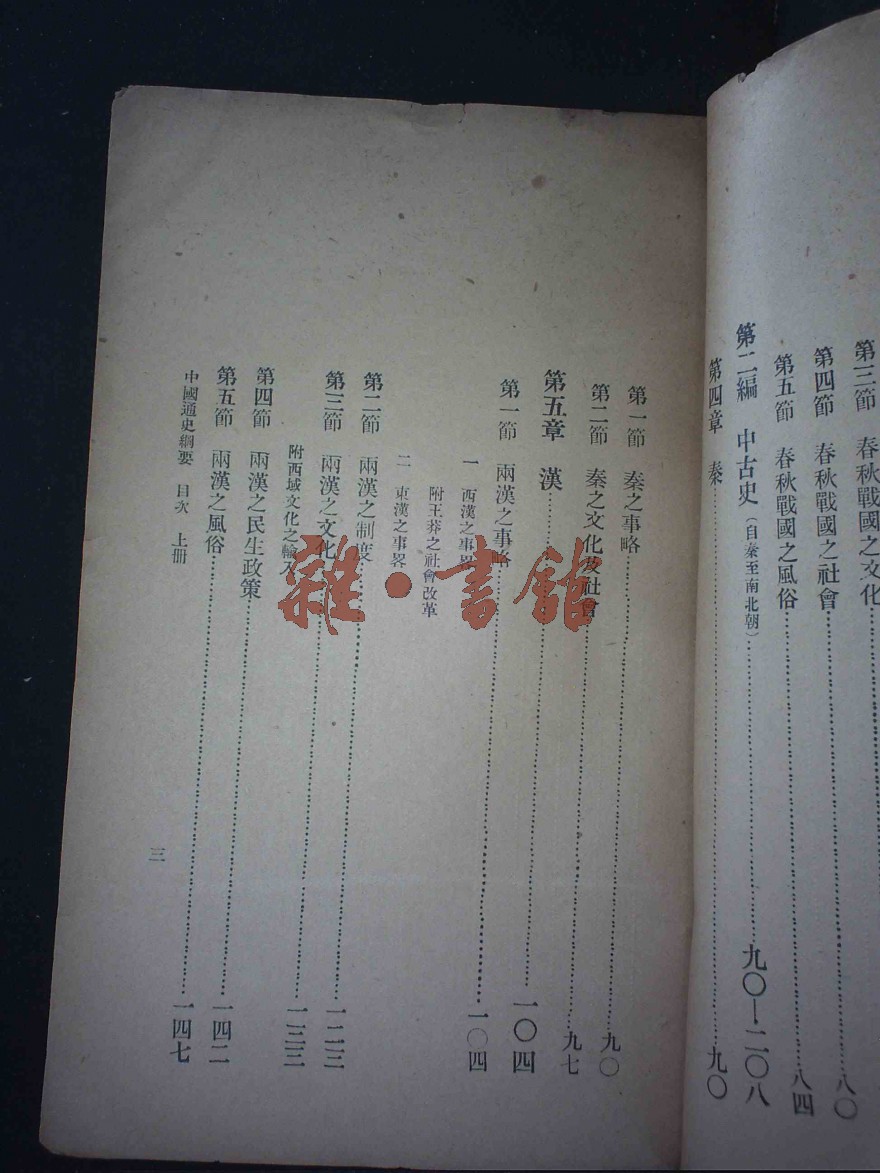 第三節　春秋戰國之文化
第四節　春秋戰國之社會……八〇
第五節　春秋戰國之風俗……八四
第二編　中古史（自秦至南北朝）……九〇—二〇八
第四章　秦……九〇
第一節　秦之事略……九〇
第二節　秦之文化及社會……九七
第五章　漢……一〇四
第一節　兩漢之事略……一〇四
一　西漢之事畧
附王莽之社會改革
二　東漢之事畧
第二節　兩漢之制度……一二三
第三節　兩漢之文化……一三三
附西域文化之輸入
第四節　兩漢之民生政策……一四二
第五節　兩漢之風俗……一四七
中國通史綱要　目次　上册　三
雜·書館